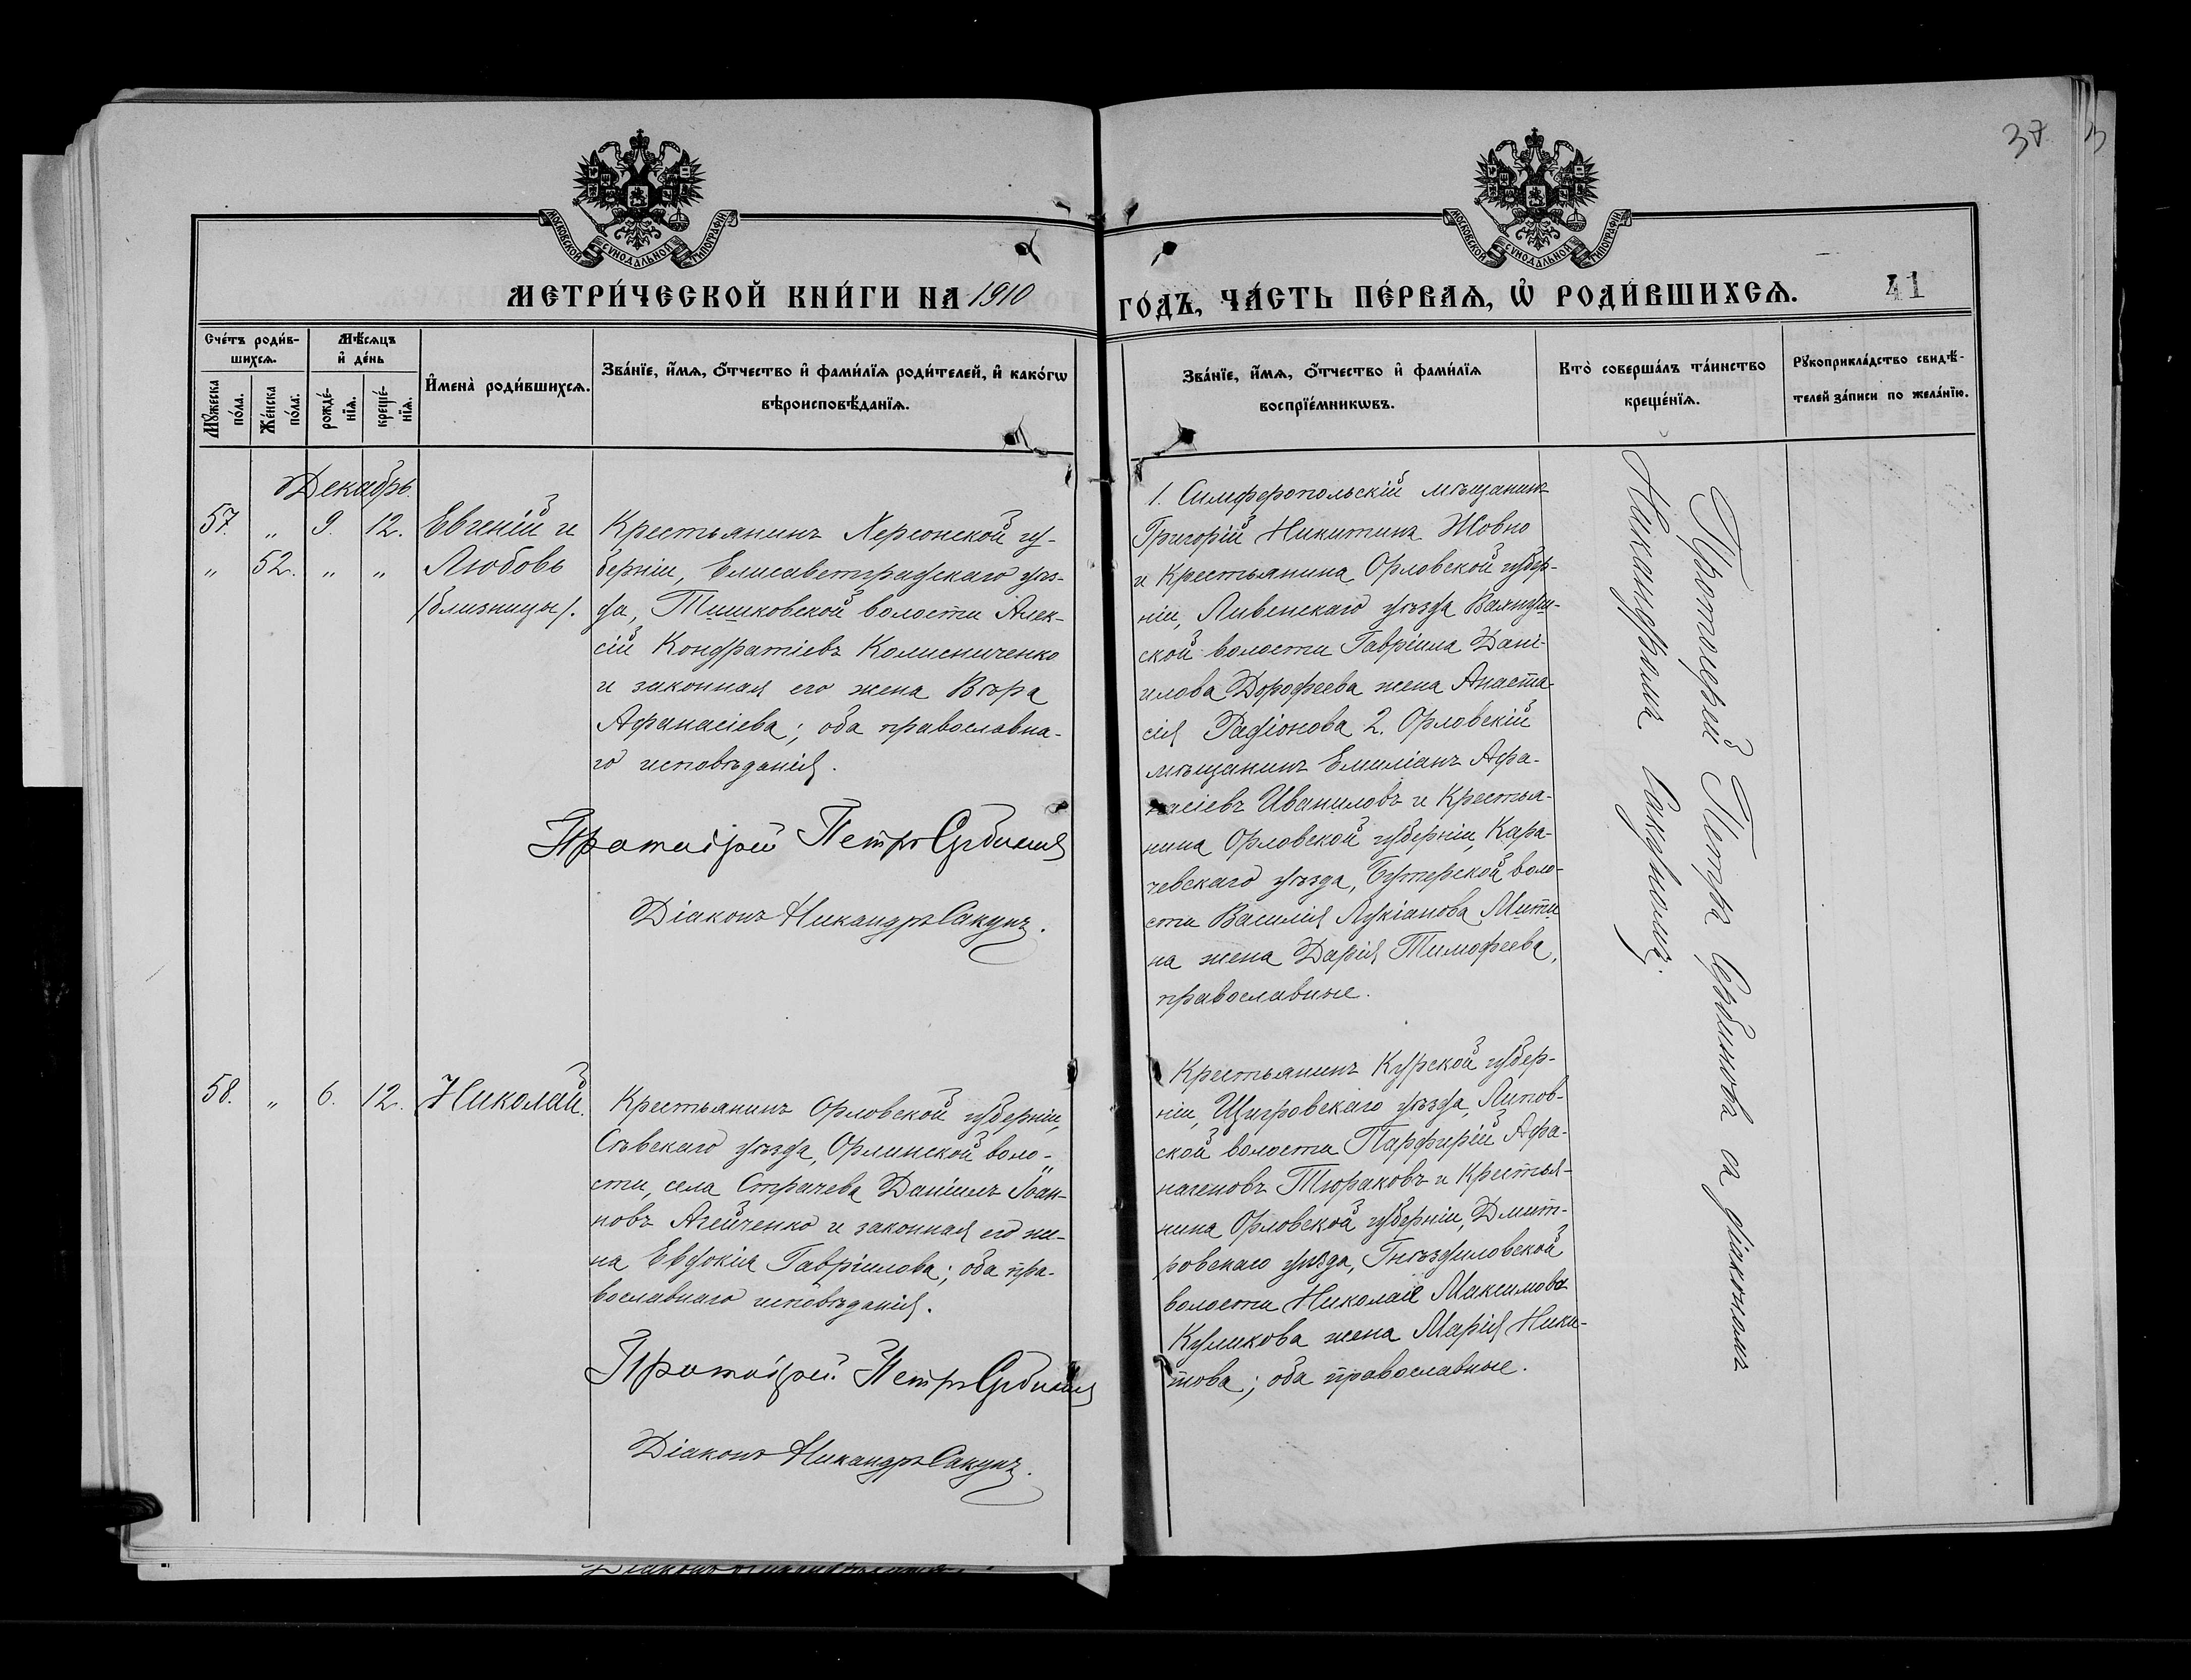 37
МОСКОВСКОЙ СУНОДАЛЬНОЙ ТИПОГРАФІИ
МОСКОВСКОЙ СУНОДАЛЬНОЙ ТИПОГРАФІИ
МЕТРИ́ЧЕСКОЙ КНИ́ГИ НА 1910
ГО́ДЪ, ЧА́СТЬ ПЕ́РВАѦ, Ѡ҆ РОДИ́ВШИХСѦ.
41
Сче́тъ роди́в-
шихсѧ.
Мꙋ́жеска
по́ла.
Же́нска
по́ла.
Мѣ́сѧцъ
и҆ де́нь
рожде́-
нїѧ.
креще́-
нїѧ.
И҆мена̀ роди́вшихсѧ.
Зва́нїе, и҆́мѧ, ѻ҆́тчество и҆ фами́лїѧ роди́телей, и҆ како́гѡ
вѣроисповѣ́данїѧ.
Зва́нїе, и҆́мѧ, ѻ҆́тчество и҆ фами́лїѧ
воспрїе́мникѡвъ.
Кто̀ соверша́лъ та́инство
креще́нїѧ.
Рꙋкоприкла́дство свидѣ́-
телей за́писи по жела́нїю.
Декабрь.
57. „ 9. 12. Евгеній и
„ 52. „ „ Любовь
/близницы/.
Крестьянинъ Херсонской гу-
берніи, Елисаветградскаго уѣз-
да, Тишковской волости Алек-
сій Кондратіевъ Колисниченко
и законная его жена Вѣра
Афанасіева; оба православна-
го исповѣданія.
Протоіерей Петръ Сербиновъ
Діаконъ Никандръ Сакунъ.
1. Симферопольскій мѣщанинъ
Григорій Никитинъ Жовно
и Крестьянина Орловской губер-
ніи, Ливенскаго уѣзда
ской волости Гавріила Дані-
илова Дорофеева жена Анаста-
сія Радіонова 2. Орловскій
мѣщанинъ Емиліанъ Афа-
насіевъ Иваниловъ и Крестья-
нина Орловской губерніи, Кара-
чевскаго уѣзда, Бутерской воло-
сти Василія Лукіанова Мити
на жена Дарія Тимофеева,
православные.
58. „ 6. 12. Николай.
Крестьянинъ Орловской губерніи,
Сѣвскаго уѣзда, Орлинской воло-
сти, села Страчева Даніилъ Іоан-
новъ Агейченко и законная его же-
на Евдокія Гавріилова; оба пра-
вославнаго исповѣданія.
Протоіерей Петръ Сербиновъ
Діаконъ Никандръ Сакунъ.
Крестьянинъ Курской губер-
ніи, Щигровскаго уѣзда, Липов-
ской волости Парфирій Афа-
насеновъ Тюраковъ и Крестья-
нина Орловской губерніи, Дмит-
ровскаго уѣзда, Гнѣздиловской
волости Николая Максимова
Куликова жена Марія Ники-
това; оба православные.
Протоіерей Петръ Сербиновъ съ діакономъ
Никандромъ Сакуномъ.